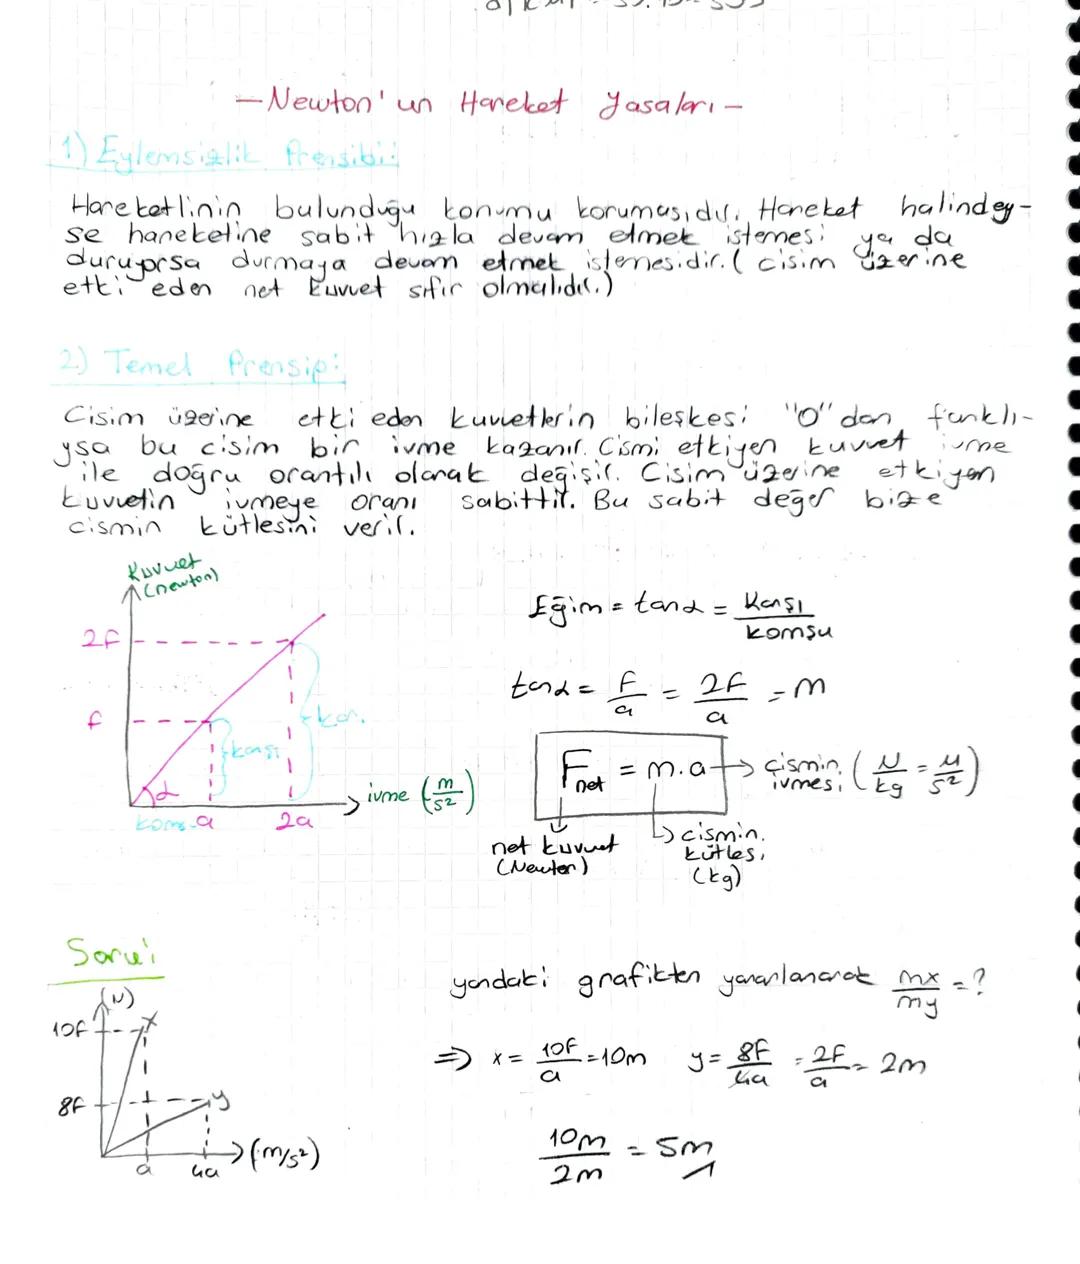 - Newton'un Hareket Yasaları -
1) Eylemsizlik Prensibi:
Hareketlinin bulunduğu konumu korumasıdır. Hareket halindey-
se hareketine sabit hızla devam etmek istemesi ya da
duruyorsa durmaya devam etmek istemesidir. ( cisim üzerine
etki eden net kuvvet sıfır olmalıdır.)
2) Temel Prensip:
Cisim üzerine etki eden kuvvetlerin bileşkesi "0" dan farklı-
ysa bu cisim bir ivme kazanır. Cismi etkiyen kuvvet ivme
ile doğru orantılı olarak değişir. Cisim üzerine etkiyen
kuvvetin ivmeye oranı sabittir. Bu sabit değer bize
cismin kütlesini verir.
Kuvvet
(newton)
2F
F
kar.
karşı
α
kom. a 2a
ivme (m/s²)
Eğim = tanα = Karşı/komşu
tanα = F/a = 2F/a = m
Fnet = m.a → cismin ivmesi (N/kg = M/s²)
net kuvvet
(Newton)
cismin
kütlesi
(kg)
Soru:
(N)
10F x
8F y
a 4a (m/s²)
yandaki grafikten yararlanarak mx/my = ?
⇒ x = 10F/a = 10m y = 8F/4a = 2F/a = 2m
10m/2m = 5m